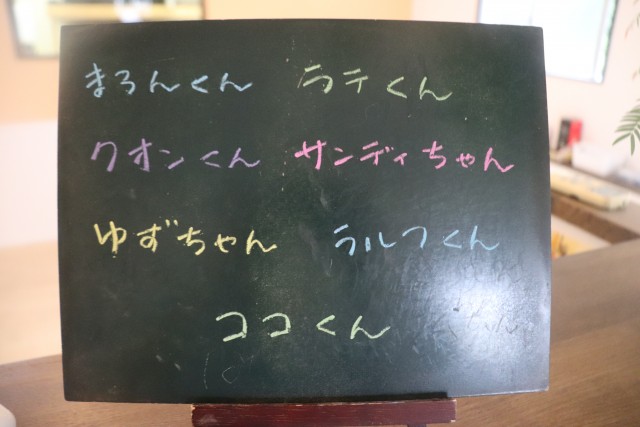 まろんくん ラテくん
クオンくん サンディちゃん
ゆずちゃん ラルフくん
ココくん